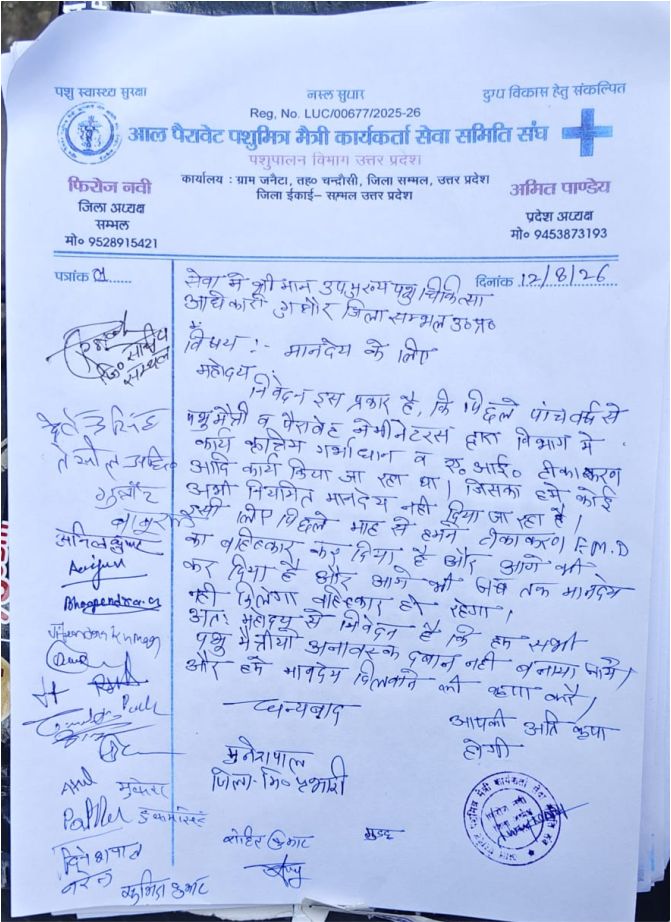 पशु स्वास्थ्य सुरक्षा
नस्ल सुधार
दुग्ध विकास हेतु संकल्पित
Reg, No. LUC/00677/2025-26
आल पैरावेट पशुमित्र मैत्री कार्यकर्ता सेवा समिति संघ
पशुपालन विभाग उत्तर प्रदेश
कार्यालय : ग्राम जनैटा, तह० चन्दौसी, जिला सम्भल, उत्तर प्रदेश
जिला ईकाई– सम्भल उत्तर प्रदेश
फिरोज नवी
जिला अध्यक्ष
सम्भल
मो० 9528915421
अमित पाण्डेय
प्रदेश अध्यक्ष
मो० 9453873193
पत्रांक 01
दिनांक 12/8/26
सेवा में श्री मान उपमुख्य पशु चिकित्सा
अधिकारी गुन्नौर जिला सम्भल उ०प्र०
विषय :- मानदेय के लिए
महोदय,
निवेदन इस प्रकार है, कि पिछले पांच वर्ष से
पशु मैत्री व पैरावेट द्वारा विभाग में
कार्य कृत्रिम गर्भाधान व ए० आई० टीकाकरण
आदि कार्य किया जा रहा था। जिसका हमे कोई
अभी नियमित मानदेय नही दिया जा रहा है।
इसी लिए पिछले माह से हमने टीकाकरण F.M.D
का बहिष्कार कर दिया है और आगे भी
कर दिया है और आगे भी जब तक मानदेय
नही मिलेगा बहिष्कार ही रहेगा।
अतः महोदय से निवेदन है कि हम सभी
पशु मैत्रीयो अनावस्क दबाव नही बनाया जाये।
और हमे मानदेय दिलवाने की कृपा करे।
धन्यवाद
आपकी अति कृपा
होगी
जि० सचिव
सम्भल
गुन्नौर
अनिल कुमार
Arjun
Bhoopendra
Jitendra Kumar
मुनेशपाल
जिला-मि० प्रभारी
Atul
मुकेश
दिनेशपाल
रोहित कुमार